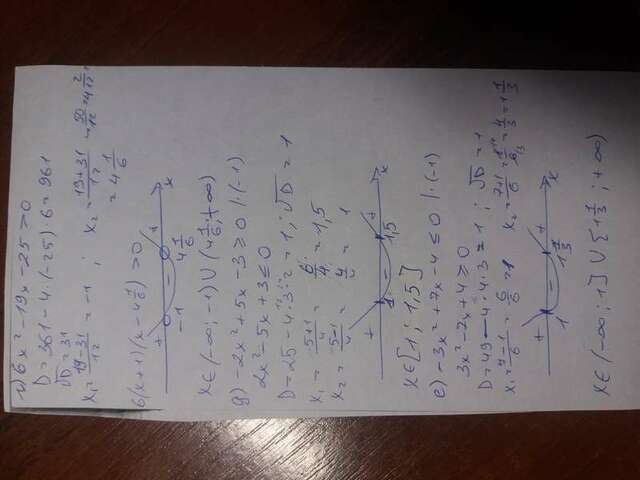 г) 6x² - 19x - 25 > 0
D = 361 - 4·(-25)·6 = 961
√D = 31
x₁ = (19-31)/12 = -1 ; x₂ = (19+31)/12 = 50/12 = 4 2/12 =
= 4 1/6
6(x+1)(x - 4 1/6) > 0
+ - + x
-1 4 1/6
x ∈ (-∞; -1) ∪ (4 1/6; +∞)
д) -2x² + 5x - 3 ≥ 0 |·(-1)
2x² - 5x + 3 ≤ 0
D = 25 - 4·3·2 = 1 ; √D = 1
x₁ = (5+1)/4 = 6/4 = 1,5
x₂ = (5-1)/4 = 4/4 = 1
+ - + x
1 1,5
x ∈ [1; 1,5]
е) -3x² + 7x - 4 ≤ 0 |·(-1)
3x² - 7x + 4 ≥ 0
D = 49 - 4·4·3 = 1 ; √D = 1
x₁ = (7-1)/6 = 6/6 = 1 x₂ = (7+1)/6 = = 4/3 = 1 1/3
+ - + x
1 1 1/3
x ∈ (-∞; 1] ∪ [1 1/3; +∞)